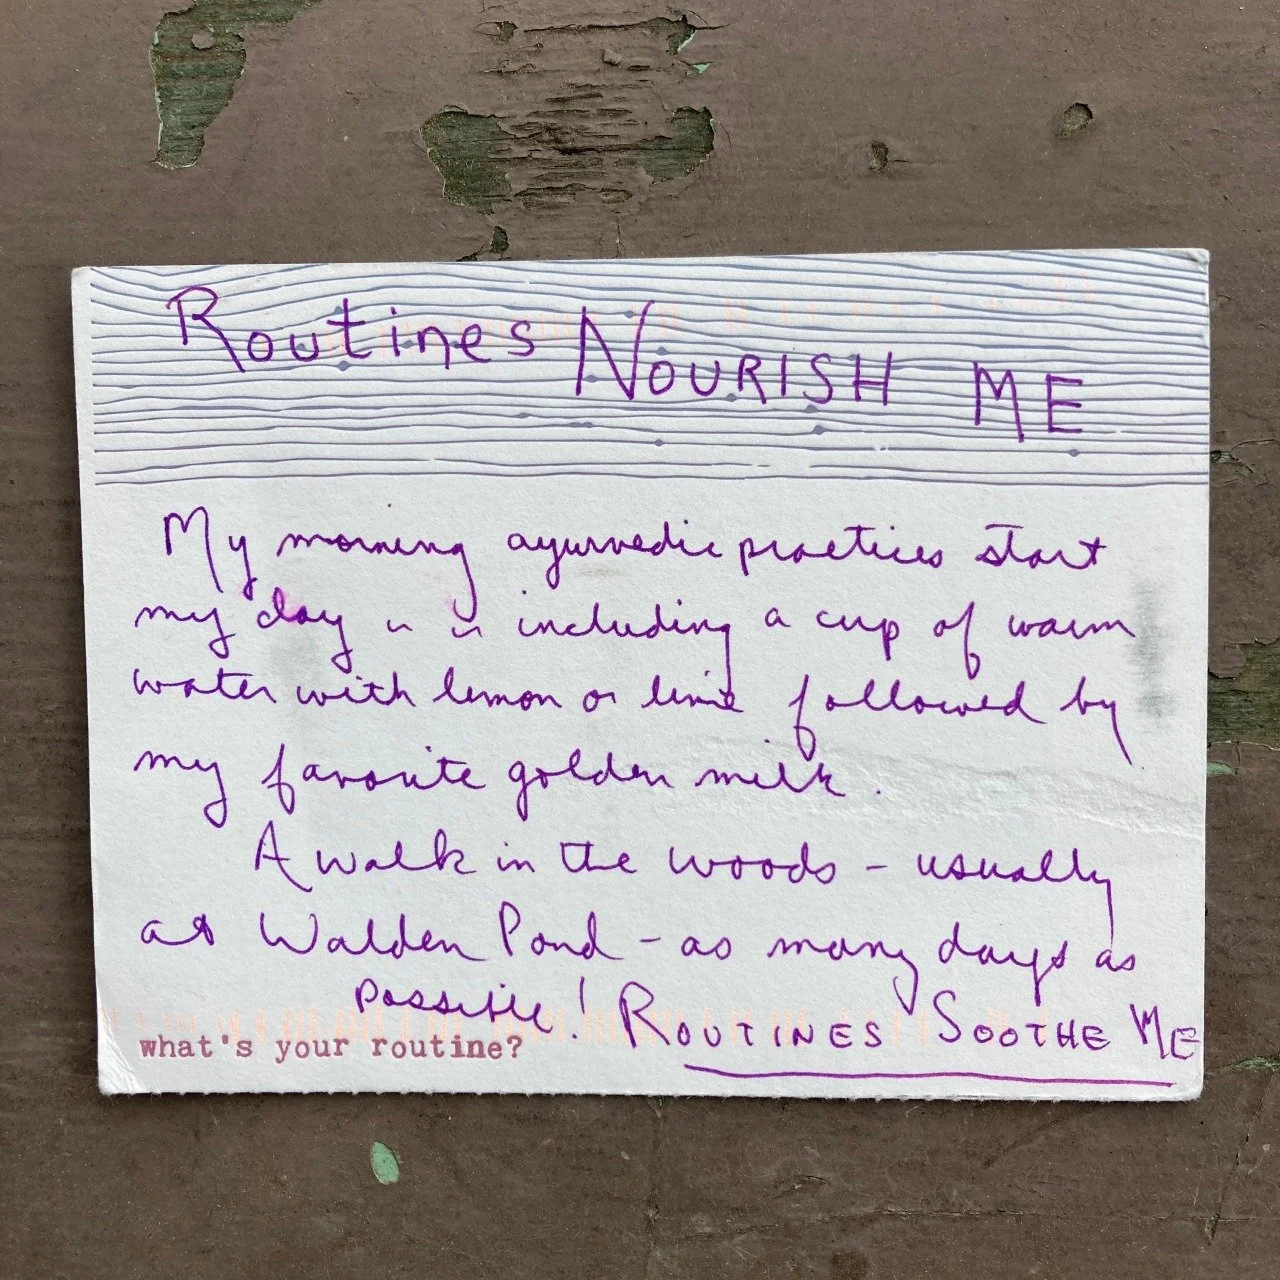 Routines NOURISH ME
My morning ayurvedic practices start
my day including a cup of warm
water with lemon or lime followed by
my favorite golden milk.
A walk in the woods - usually
at Walden Pond - as many days as
possible! ROUTINES SOOTHE ME
what's your routine?